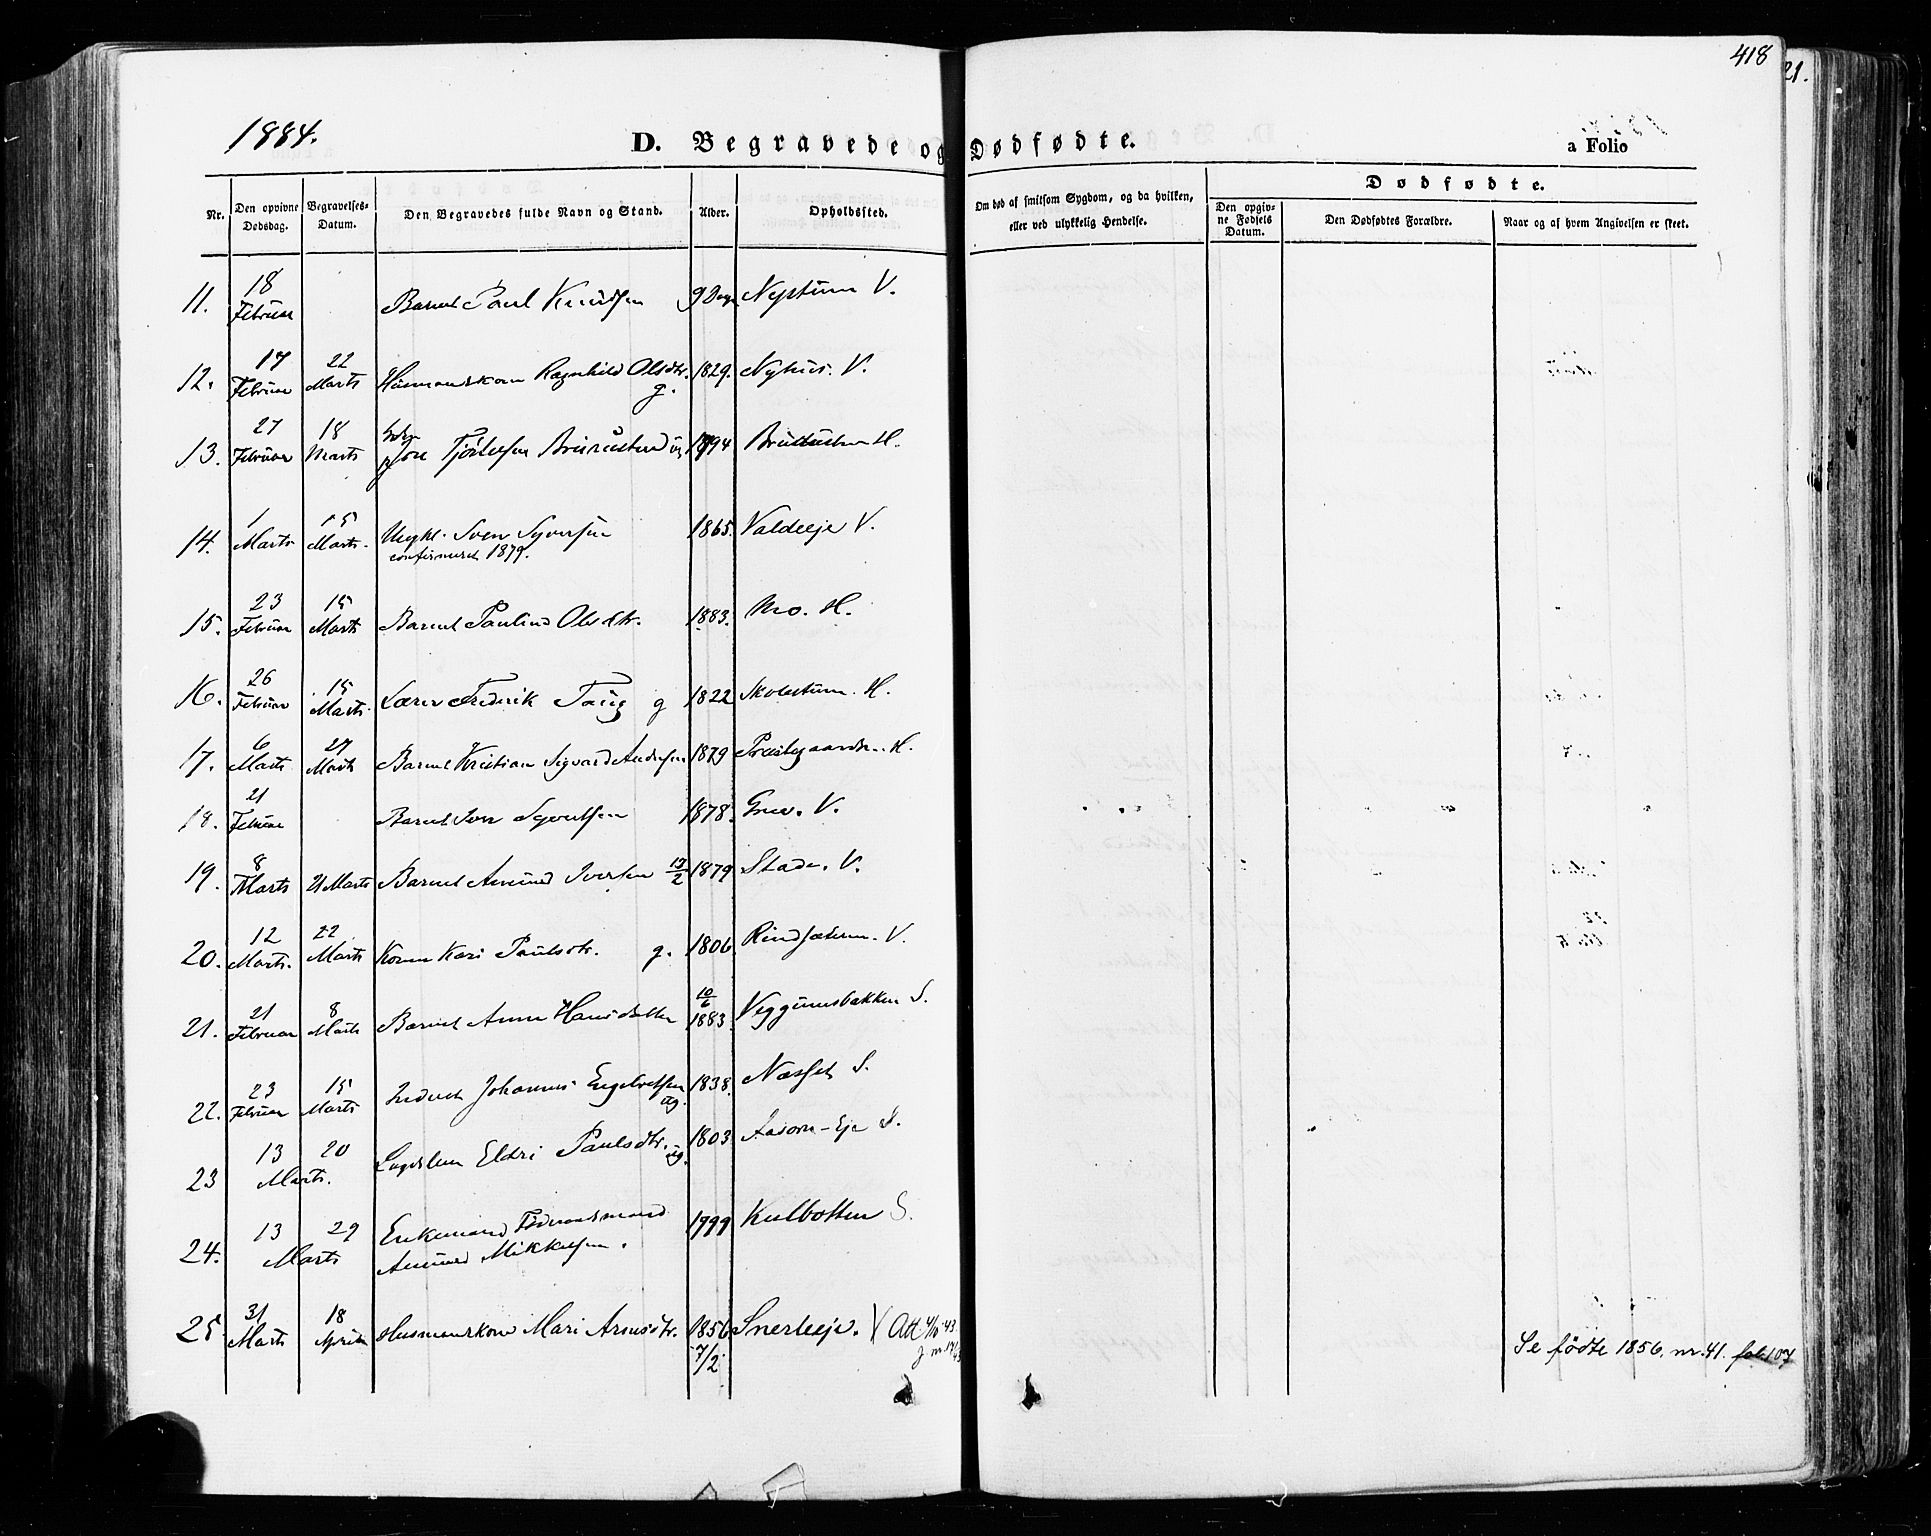 418
21.
1884.
D. Begravede og Dødfødte.
a Folio
Nr.
Den opgivne Dødsdag.
Begravelses-Datum.
Den Begravedes fulde Navn og Stand.
Alder.
Opholdssted.
Om død af smitsom Sygdom, og da hvilken, eller ved ulykkelig Hendelse.
Dødfødte.
Den opgivne Fødsels Datum.
Den Dødfødtes Forældre.
Naar og af hvem Angivelsen er skeet.
11. 18 Februar Barnet Paul Knudsen 9 Dage Nystuen V.
12. 17 Februar 22 Marts Husmandskone Ragnhild Olsdtr. g. 1829. Nyhus. V.
13. 27 Februar 18 Marts Tore 1794 H.
14. 1 Marts 15 Marts. Ungkl. Sven Syversen
confirmeret 1879. 1865. Valdeeje V.
15. 23 Februar 15 Marts Barnet Pauline Olsdtr. 1883. Mo. H.
16. 26 Februar 15 Marts Lærer Frederik g 1822 Skolestuen. H.
17. 6 Marts 27 Marts Barnet Kristian Sigvard Andersen 1879 Præstegaarden. H.
18. 21 Februar Barnet Iver Syvertsen 1878. Grev. V.
19. 8 Marts 21 Marts Barnet Amund Iversen 17/2 1879 Stade. V.
20. 12 Marts. 22 Marts Konen Kari Paulsdtr. g. 1806 Rindsæteren. V.
21. 21 Februar 8 Marts Barnet Anne Hansdatter 10/6 1883 Veggumsbakken S.
22. 23 Februar 15 Marts Inderst Johannes Engebretsen ug. 1838. Næsset S.
23 13 20 Marts. Lægdslem Eldri Paulsdtr. ug. 1803 Aasore-Eje S.
24. 13 29 Marts Enkemand Føderaadsmand
Amund Mikkelsen. 1799 Kulbotten S.
25 31 Marts 18 April Husmandskone Mari Arnesdtr. 1856 7/2 Snerleeje. X Att 4/10-43.
j nr. 17/43
Se fødte 1856. nr. 41. fol 107